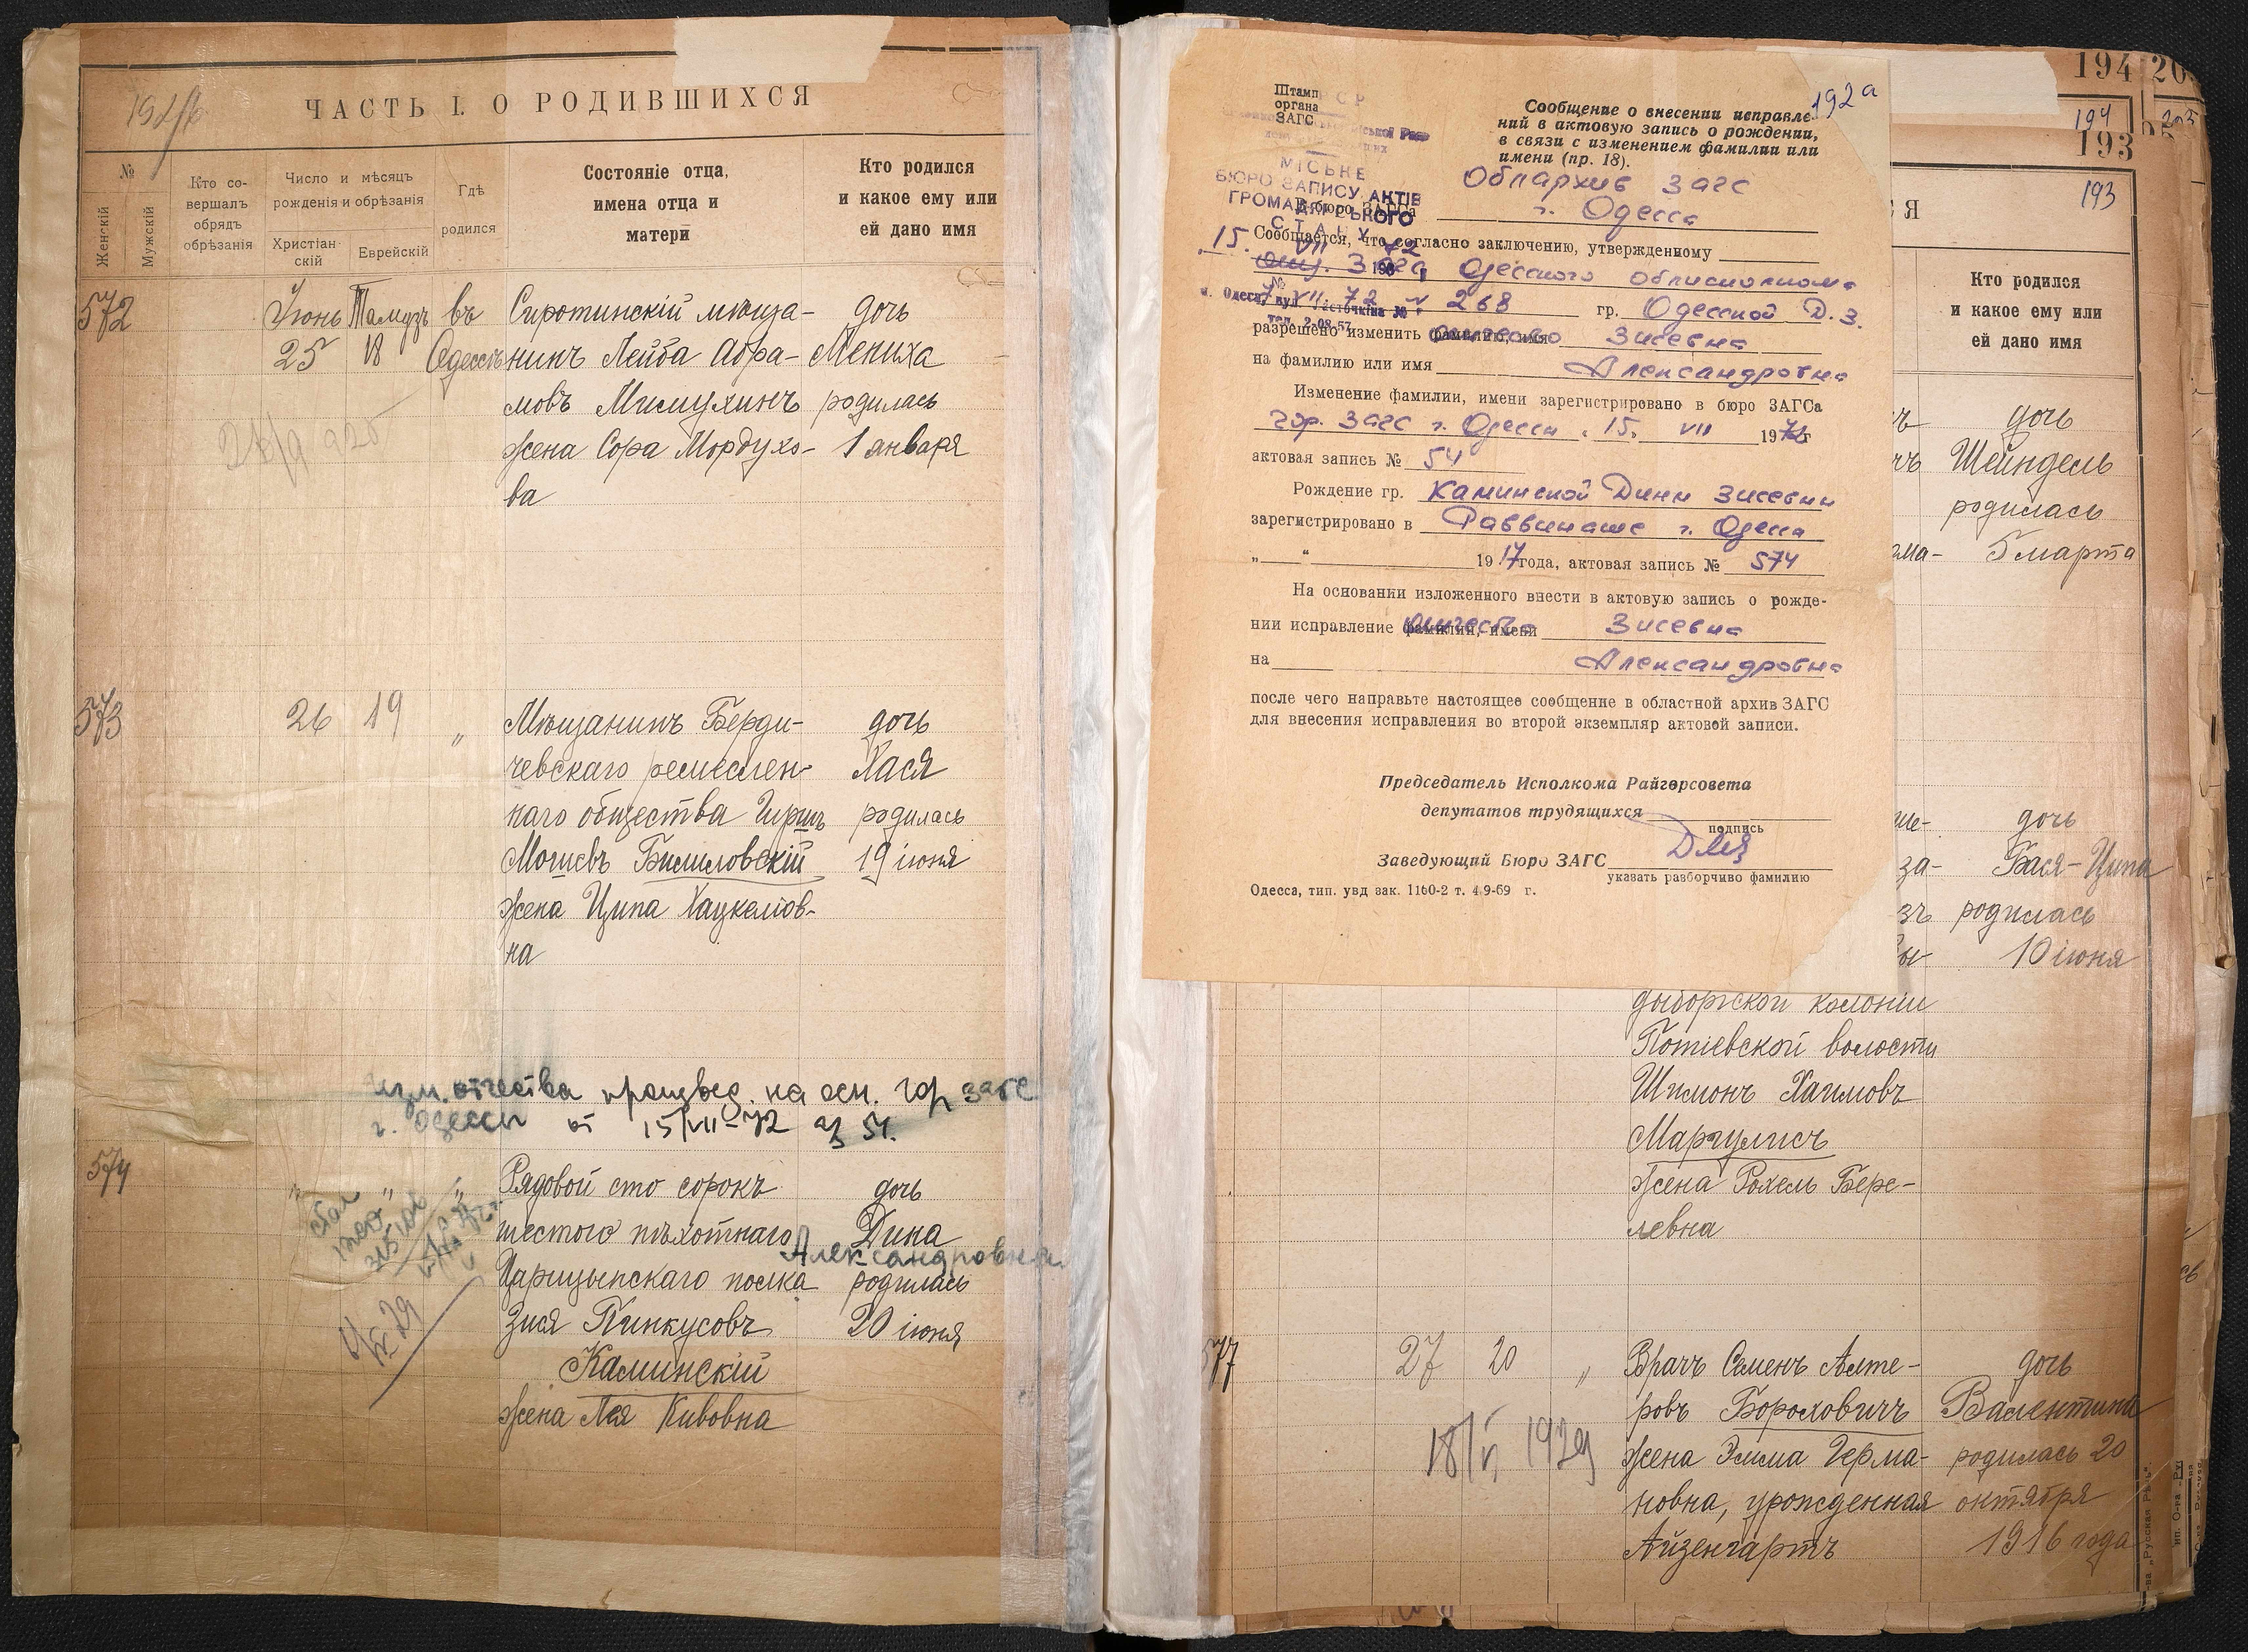 ЧАСТЬ I. О РОДИВШИХСЯ
№
Женскій
Мужскій
Кто со-
вершалъ
обрядъ
обрѣзанія
Число и мѣсяцъ
рожденія и обрѣзанія
Христіан-
скій
Еврейскій
Гдѣ
родился
Состояніе отца,
имена отца и
матери
Кто родился
и какое ему или
ей дано имя
572
Іюнь Тамузъ въ
25 18 Одессѣ
Сиротинскій мѣща-
нинъ Лейба Абра-
мовъ
жена Сора Мордухо-
ва
дочь
Мениха
родилась
1 января
573
26 19 „
Мѣщанинъ Берди-
чевскаго ремеслен-
наго общества Гиршъ
Мошевъ
жена Ципа Хацкелов-
на
дочь
Хася
родилась
19 іюня
Изм. отчества произвед. на осн. гор загс
г. Одессы от 15/VII-72 54.
574
„ „ „
Рядовой сто сорокъ
шестого пѣхотнаго
Царицынскаго полка
Зися Пинкусовъ
Каминскій
жена Лея Кивовна
дочь
Дина
Александровна
родилась
20 іюня
192а
Штамп
органа
ЗАГС
МІСЬКЕ
БЮРО ЗАПИСУ АКТІВ
ГРОМАДЯНСЬКОГО
СТАНУ
15. VII 72
Сообщение о внесении исправле-
ний в актовую запись о рождении,
в связи с изменением фамилии или
имени (пр. 18).
Облархив загс
В бюро ЗАГСа г. Одесса
Сообщается, что согласно заключению, утвержденному
Загс Одесского облисполкома
VII. 72 № 268 гр. Одесской Д. З.
разрешено изменить фамилию, имя Зисевна
на фамилию или имя Александровна
Изменение фамилии, имени зарегистрировано в бюро ЗАГСа
гор. Загс г. Одессы „15„ VII 1972 г
актовая запись № 54
Рождение гр. Каминской Дины Зисевны
зарегистрировано в Раввинате г. Одесса
„ “ 1917 года, актовая запись № 574
На основании изложенного внести в актовую запись о рожде-
нии исправление фамилии, имени отчество Зисевна
на Александровна
после чего направьте настоящее сообщение в областной архив ЗАГС
для внесения исправления во второй экземпляр актовой записи.
Председатель Исполкома Райгорсовета
депутатов трудящихся
подпись
Заведующий Бюро ЗАГС
указать разборчиво фамилию
Одесса, тип. увд зак. 1160-2 т. 4.9-69 г.
194
194
203
193
193
Я
Кто родился
и какое ему или
ей дано имя
дочь
Шейндель
родилась
5 марта
дочь
Бася-Ципа
родилась
10 іюня
колоніи
Потіевской волости
Шимонъ Хаимовъ
Маргулисъ
жена Рохель Бере-
левна
577
27 20 „
18/V 1929
Врачъ Семенъ Алте-
ровъ Бороховичъ
жена Эмма Герма-
новна, урожденная
Айзенгартъ
дочь
Валентина
родилась 20
октября
1916 года